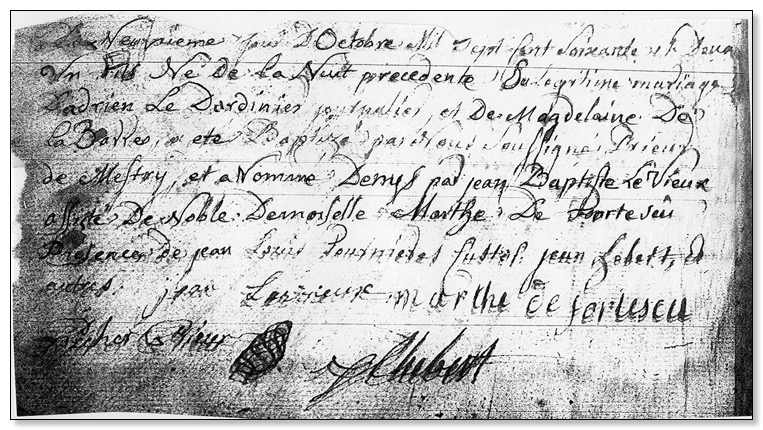 Le Neuvieme jour D'Octobre Mil Sept Cent Soixante et Douze
Un fils Né De La Nuit precedente Du Legitime mariage
D'adrien Le Dardinier journalier, et De Magdelaine De
la Barre, a eté Baptizé par Nous Soussigné Prieur
de Mestry, et a Nommé Denys par jean Baptiste Le Vieux
assisté De Noble Demoiselle Marthe De Forteseu
Presence de jean Louis Fournieres Custos, jean hebert, et
autres. jean Levieux marthe de fortescu
hebert